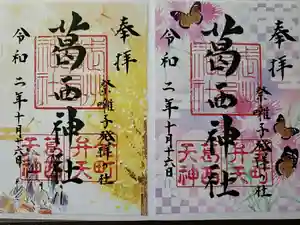 奉拝
葛西神社
祭囃子発祥の社
令和二年十月十六日
葛西神社
弁天
天神
奉拝
葛西神社
祭囃子発祥の社
令和二年十月十六日
葛西神社
弁天
天神